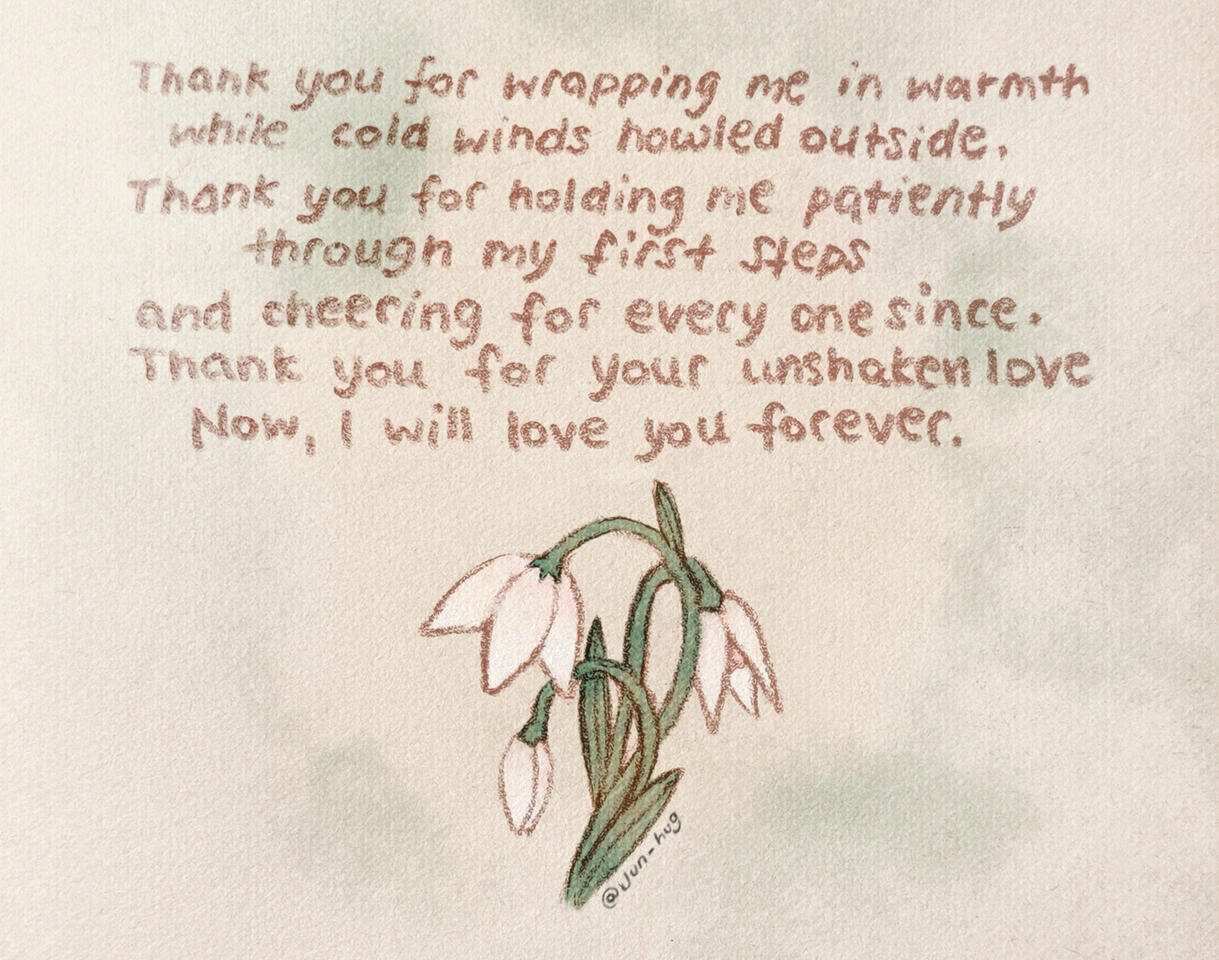 Thank you for wrapping me in warmth
while cold winds howled outside.
Thank you for holding me patiently
through my first steps
and cheering for every one since.
Thank you for your unshaken love
Now, I will love you forever.
@Jun-hug